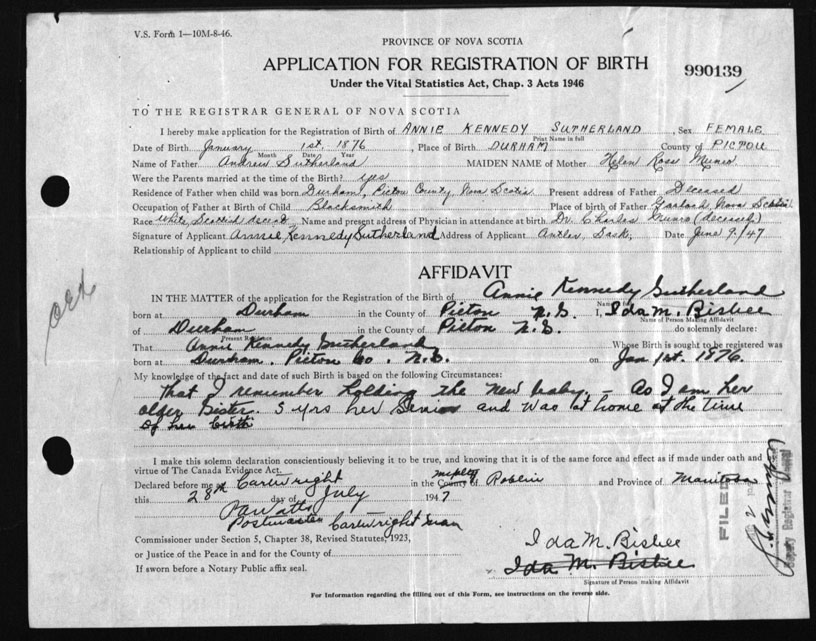 V.S. Form 1—10M-8-46.
PROVINCE OF NOVA SCOTIA
APPLICATION FOR REGISTRATION OF BIRTH
990139
Under the Vital Statistics Act, Chap. 3 Acts 1946
TO THE REGISTRAR GENERAL OF NOVA SCOTIA
I hereby make application for the Registration of Birth of ANNIE KENNEDY SUTHERLAND, Sex FEMALE
Print Name in full
Date of Birth January 1st. 1876, Place of Birth DURHAM County of PICTOU
Month Date Year
Name of Father Andrew Sutherland MAIDEN NAME of Mother Helen Rose Munro
Were the Parents married at time of the Birth? yes
Residence of Father when child was born Durham, Pictou County, Nova Scotia Present address of Father Deceased
Occupation of Father at Birth of Child Blacksmith Place of birth of Father Garloch Nova Scotia
Race White Scottish Name and present address of Physician in attendance at birth Dr. Charles Munro (deceased)
Signature of Applicant Annie Kennedy Sutherland Address of Applicant Antler, Sask. Date June 9/47
Relationship of Applicant to child
AFFIDAVIT
IN THE MATTER of the application for the Registration of the Birth of Annie Kennedy Sutherland
born at Durham in the County of Pictou N.S. I, Ida M. Bisbee
Name of Person Making Affidavit
of Durham in the County of Pictou N.S. do solemnly declare:
Present Residence
That Annie Kennedy Sutherland Whose Birth is sought to be registered was
born at Durham, Pictou Co. N.S. on Jan 1st. 1876.
My knowledge of the fact and date of such Birth is based on the following Circumstances:
That I remember holding the new baby. – As I am her
older Sister. 5 yrs her Senior and was at home at the time
of her birth
I make this solemn declaration conscientiously believing it to be true, and knowing that it is of the same force and effect as if made under oath and
virtue of The Canada Evidence Act.
Declared before me at Cartwright in the County of Roblin and Province of Manitoba
this 28th day of July 1947
Postmaster Cartwright Man
Commissioner under Section 5, Chapter 38, Revised Statutes, 1923,
or Justice of the Peace in and for the County of
If sworn before a Notary Public affix seal.
Ida M. Bisbee
Ida M. Bisbee
Signature of Person making Affidavit
For Information regarding the filling out of this Form, see instructions on the reverse side.
FILED
Deputy Registrar General